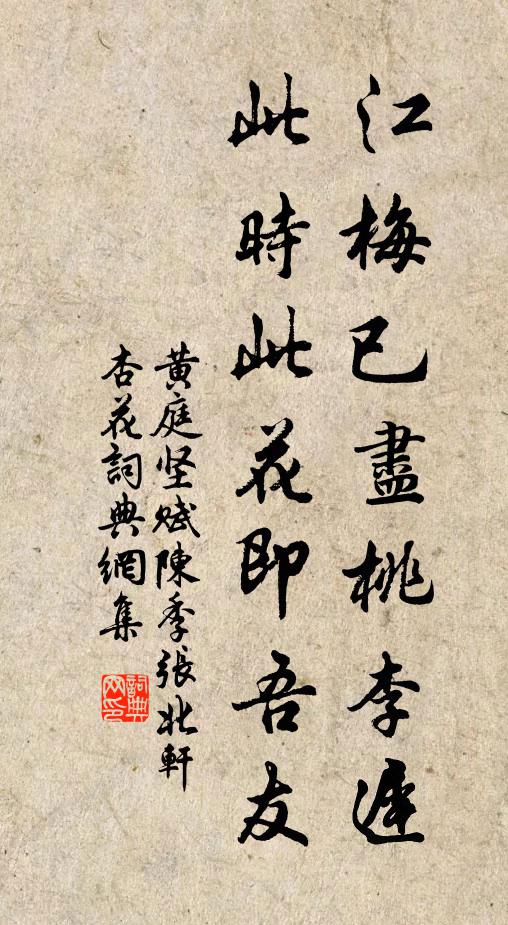 江梅已盡桃李遲
此時此花即吾友
黄庭坚赋陳季張北軒
杏花詞典網集
詞典网印